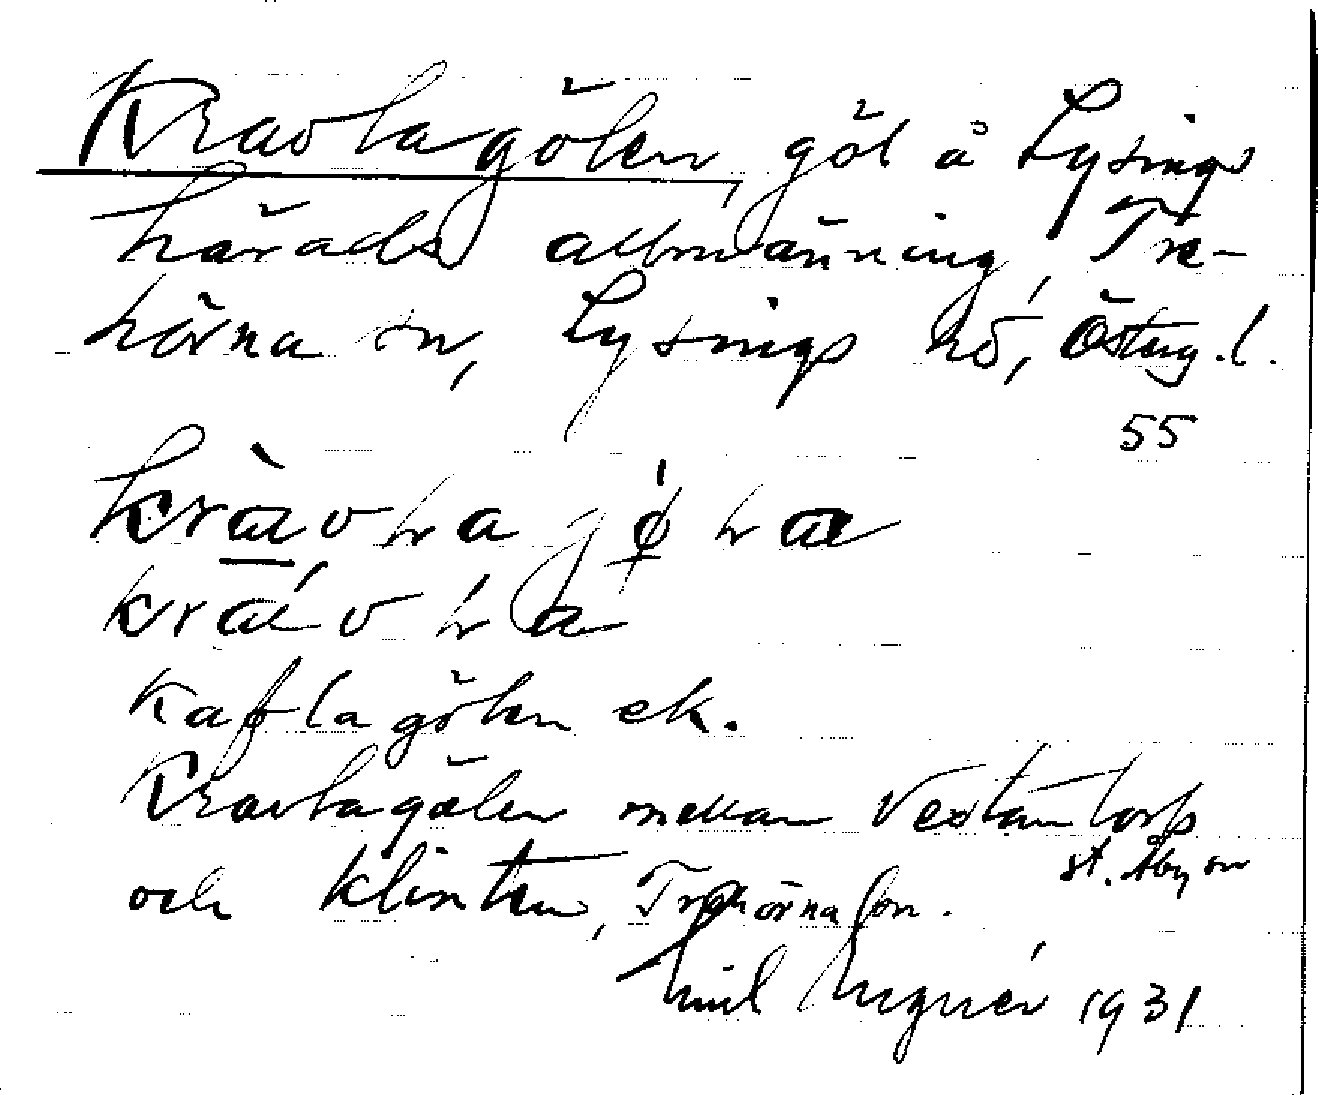 Kravlagölen, göl å Lysings
härads allmänning, Tre-
hörna sn, Lysings hd,Österg. l.
55
kràvla gǿla
krávla
Kaflagölen ek.
Kravlagölen mellan Vestantorp
st. Åby sn
och Klinten, Trehörna sn.
Emil 1931